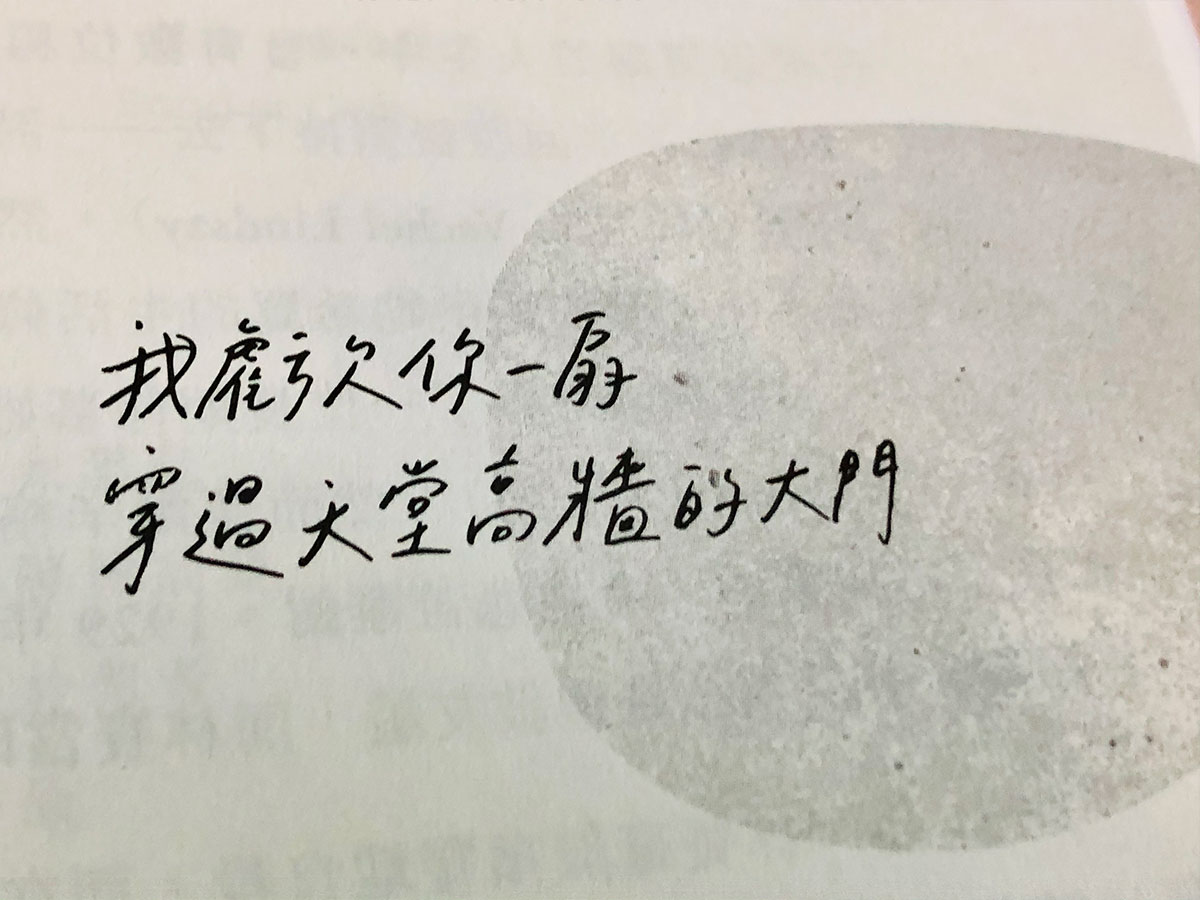 我虧欠你一扇
穿過天堂高牆的大門